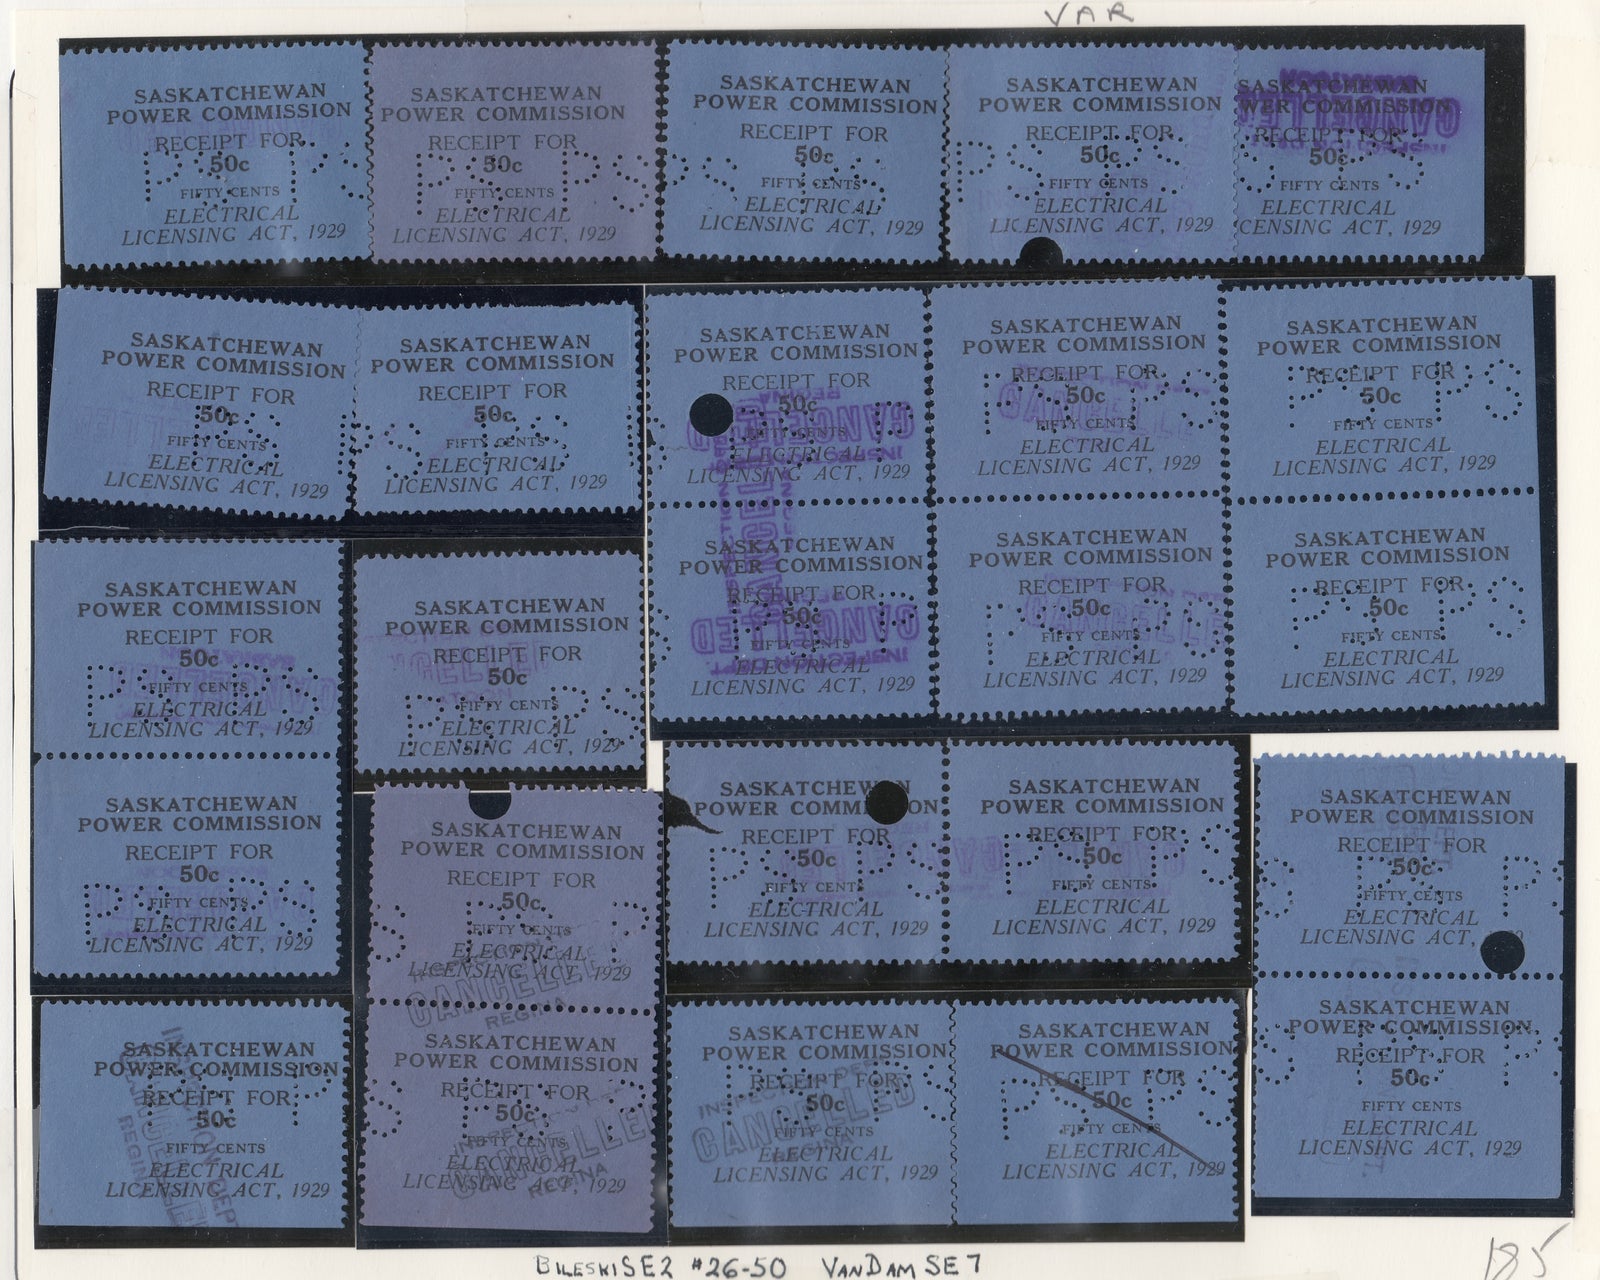 VAR
SASKATCHEWAN
POWER COMMISSION
RECEIPT FOR
50c
FIFTY CENTS
ELECTRICAL
LICENSING ACT, 1929
PS PS
SASKATCHEWAN
POWER COMMISSION
RECEIPT FOR
50c
FIFTY CENTS
ELECTRICAL
LICENSING ACT, 1929
PS PS
SASKATCHEWAN
POWER COMMISSION
RECEIPT FOR
50c
FIFTY CENTS
ELECTRICAL
LICENSING ACT, 1929
SASKATCHEWAN
POWER COMMISSION
RECEIPT FOR
50c
FIFTY CENTS
ELECTRICAL
LICENSING ACT, 1929
PS PS
SASKATCHEWAN
WER COMMISSION
RECEIPT FOR
50c
FIFTY CENTS
ELECTRICAL
CENSING ACT, 1929
CANCELLED
SASKATCHEWAN
POWER COMMISSION
RECEIPT FOR
50c
FIFTY CENTS
ELECTRICAL
LICENSING ACT, 1929
PS PS
SASKATCHEWAN
POWER COMMISSION
RECEIPT FOR
50c
FIFTY CENTS
ELECTRICAL
LICENSING ACT, 1929
PS
SASKATCHEWAN
POWER COMMISSION
RECEIPT FOR
50c
FIFTY CENTS
ELECTRICAL
LICENSING ACT, 1929
CANCELLED
REGINA
SASKATCHEWAN
POWER COMMISSION
RECEIPT FOR
50c
FIFTY CENTS
ELECTRICAL
LICENSING ACT, 1929
PS PS
CANCELLE
SASKATCHEWAN
POWER COMMISSION
RECEIPT FOR
50c
FIFTY CENTS
ELECTRICAL
LICENSING ACT, 1929
PS PS
SASKATCHEWAN
POWER COMMISSION
RECEIPT FOR
50c
FIFTY CENTS
ELECTRICAL
LICENSING ACT, 1929
CANCELLED
SASKATCHEWAN
POWER COMMISSION
RECEIPT FOR
50c
FIFTY CENTS
ELECTRICAL
LICENSING ACT, 1929
PS PS
CANCELLE
SASKATCHEWAN
POWER COMMISSION
RECEIPT FOR
50c
FIFTY CENTS
ELECTRICAL
LICENSING ACT, 1929
PS PS
SASKATCHEWAN
POWER COMMISSION
RECEIPT FOR
50c
FIFTY CENTS
ELECTRICAL
LICENSING ACT, 1929
PS PS
SASKATCHEWAN
POWER COMMISSION
RECEIPT FOR
50c
FIFTY CENTS
ELECTRICAL
LICENSING ACT, 1929
PS PS
SASKATCHEWAN
POWER COMMISSION
RECEIPT FOR
50c
FIFTY CENTS
ELECTRICAL
LICENSING ACT, 1929
PS PS
SASKATCHEWAN
POWER COMMISSION
RECEIPT FOR
50c
FIFTY CENTS
ELECTRICAL
LICENSING ACT, 1929
CANCELLE
REGINA
SASKATCHEWAN
POWER COMMISSION
RECEIPT FOR
50c
FIFTY CENTS
ELECTRICAL
LICENSING ACT, 1929
CANCELLE
REGINA
SASKATCHEWAN
POWER COMMISSION
RECEIPT FOR
50c
FIFTY CENTS
ELECTRICAL
LICENSING ACT, 1929
PS PS
SASKATCHEWAN
POWER COMMISSION
RECEIPT FOR
50c
FIFTY CENTS
ELECTRICAL
LICENSING ACT, 1929
PS PS
SASKATCHEWAN
POWER COMMISSION
RECEIPT FOR
50c
FIFTY CENTS
ELECTRICAL
LICENSING ACT,
S PS P
SASKATCHEWAN
POWER COMMISSION
RECEIPT FOR
50c
FIFTY CENTS
ELECTRICAL
LICENSING ACT, 1929
SASKATCHEWAN
POWER COMMISSION
RECEIPT FOR
50c
FIFTY CENTS
ELECTRICAL
LICENSING ACT, 1929
INSPECTION DEPT
CANCELLED
REGINA
SASKATCHEWAN
POWER COMMISSION
RECEIPT FOR
50c
FIFTY CENTS
ELECTRICAL
LICENSING ACT, 1929
INSPECTION DEP
CANCELLED
REGINA
SASKATCHEWAN
POWER COMMISSION
RECEIPT FOR
50c
FIFTY CENTS
ELECTRICAL
LICENSING ACT, 1929
PS PS
BILESKI SE2 #26-50 VANDAM SE7
185